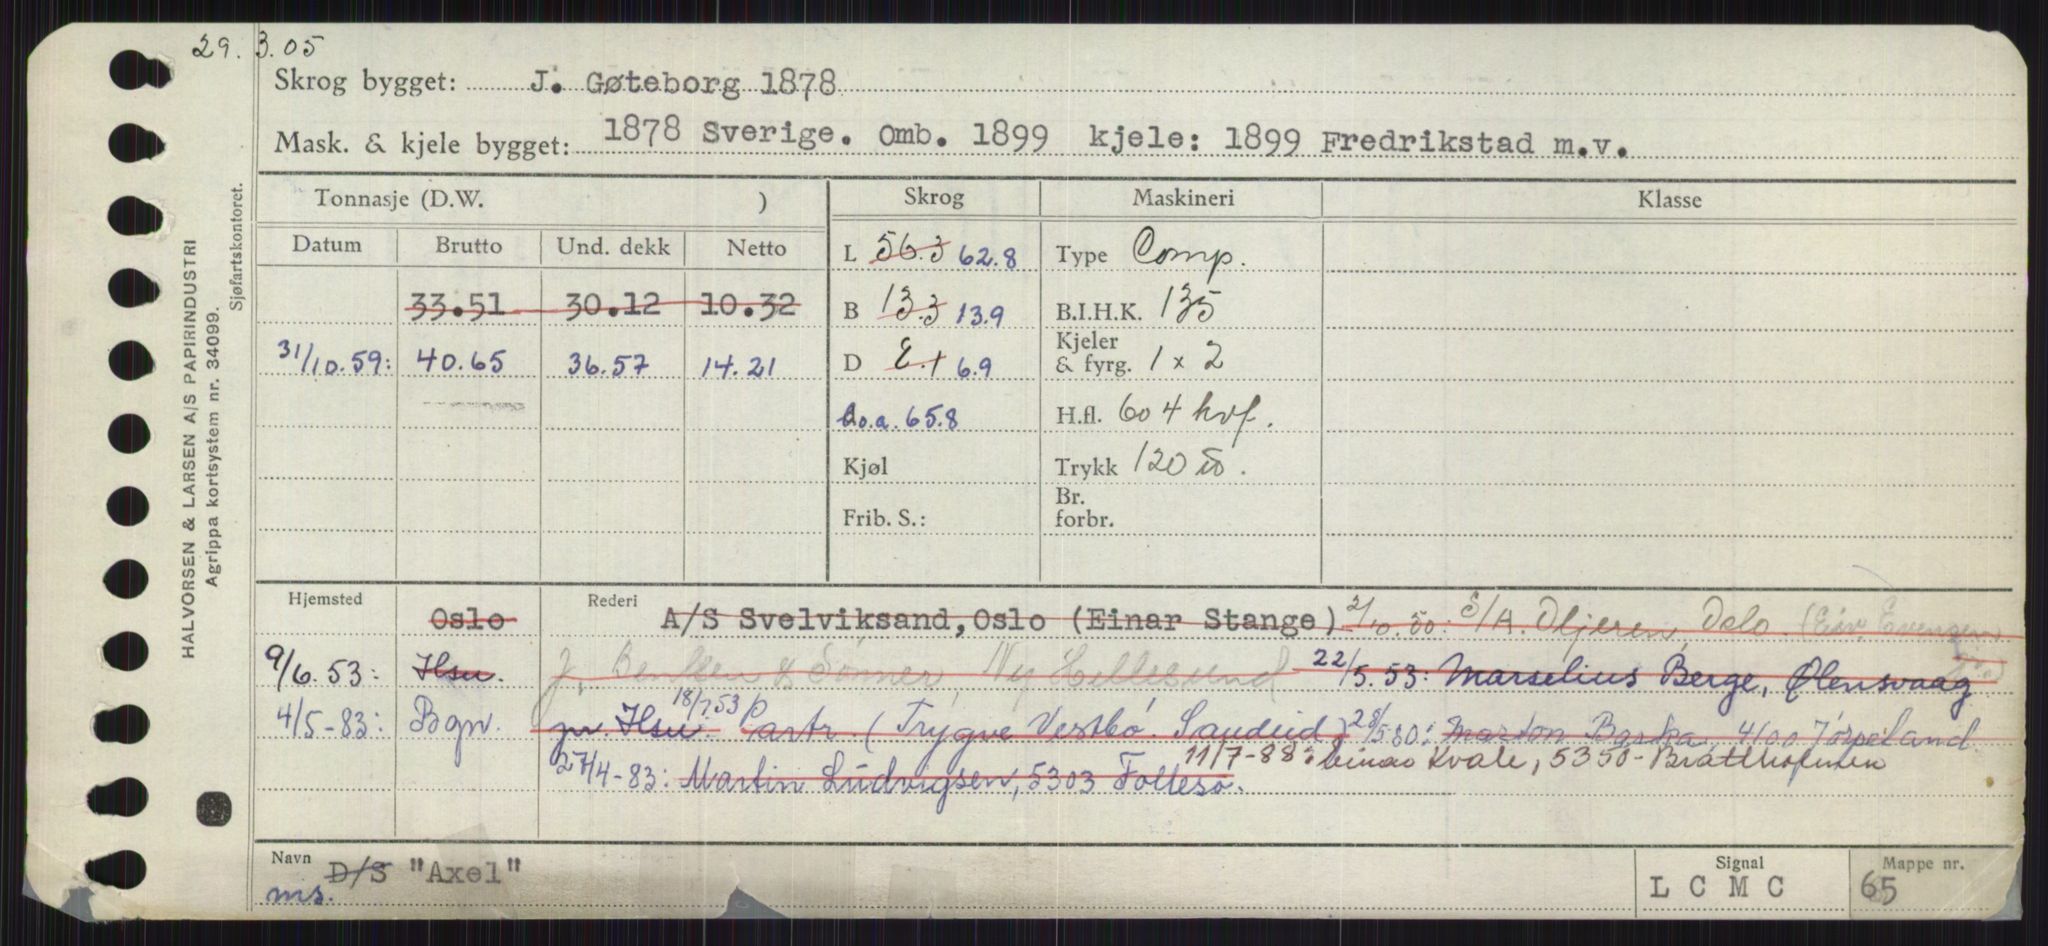 29. 3.05
Skrog bygget: J. Gøteborg 1878
Mask. & kjele bygget: 1878 Sverige. Omb. 1899 kjele: 1899 Fredrikstad m.v.
Tonnasje (D.W. ) Skrog Maskineri Klasse
Datum Brutto Und. dekk Netto L 56.3 62.8 Type Comp.
33.51 30.12 10.32 B 13.3 13.9 B.I.H.K. 135
31/10.59: 40.65 36.57 14.21 D 6.9 Kjeler & fyrg. 1 x 2
Lo.a. 65.8 H.fl. 604 hvf.
Kjøl Trykk 120
Frib. S.: Br. forbr.
Hjemsted Oslo Rederi A/S Svelviksand, Oslo (Einar Stange) 2/10.50: Oslo.
9/6.53: Hsu. J. & Sønner, Ny Hellesund 22/5.53: Marselius Berge, Ølensvaag
4/5-83: Bgn. pr. Hsu. 18/7.53 Partr. (Trygve Vestbø. Sandeid) 28/5 80: 4100 Jørpeland
27/4-83: Martin Ludvigsen, 5303 Follesø. 11/7-88: Einar Kvale, 5350 - Brattholmen
Navn D/S "Axel" Signal Mappe nr.
ms. L C M C 65
HALVORSEN & LARSEN A/S PAPIRINDUSTRI
Agrippa kortsystem nr. 34099.
Sjøfartskontoret.